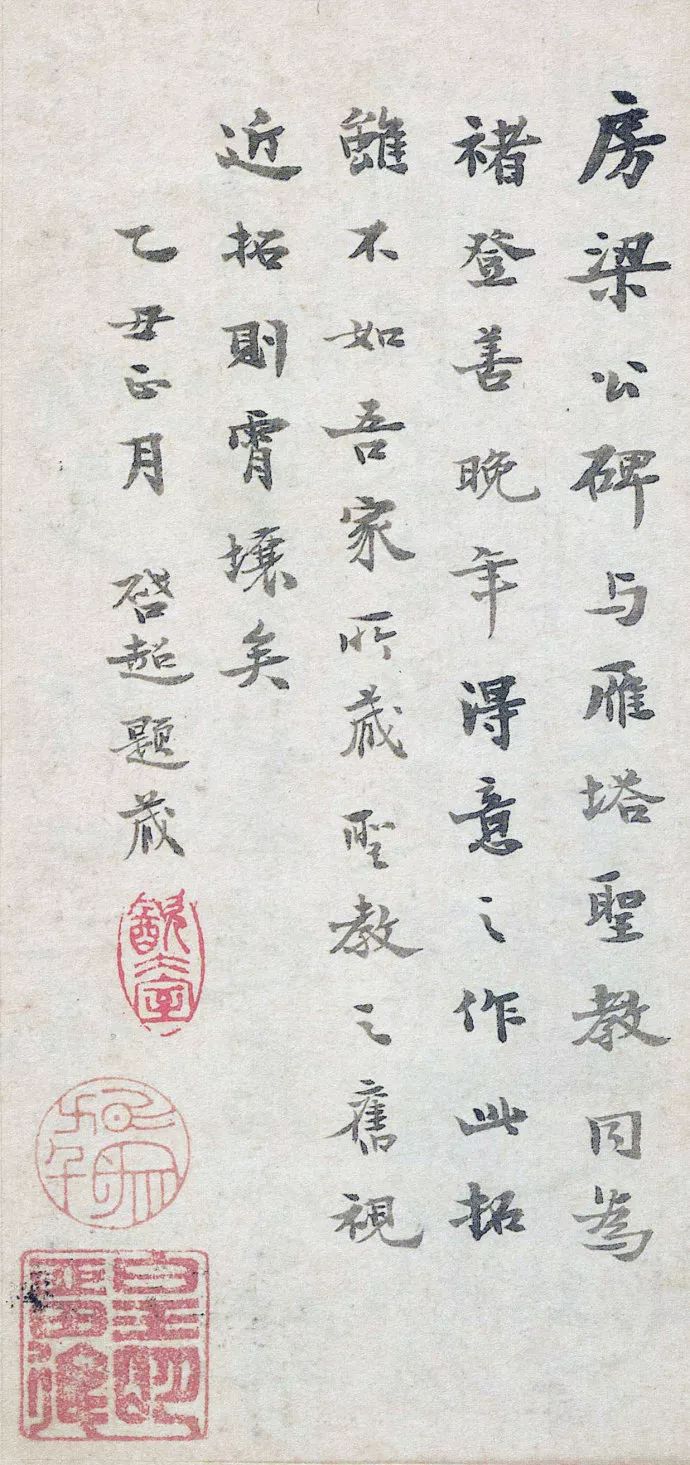 房梁公碑与雁塔聖教同為
褚登善晚年得意之作此拓
雖不如吾家所藏聖教之舊視
近拓則霄壤矣
乙丑正月 啓超題藏